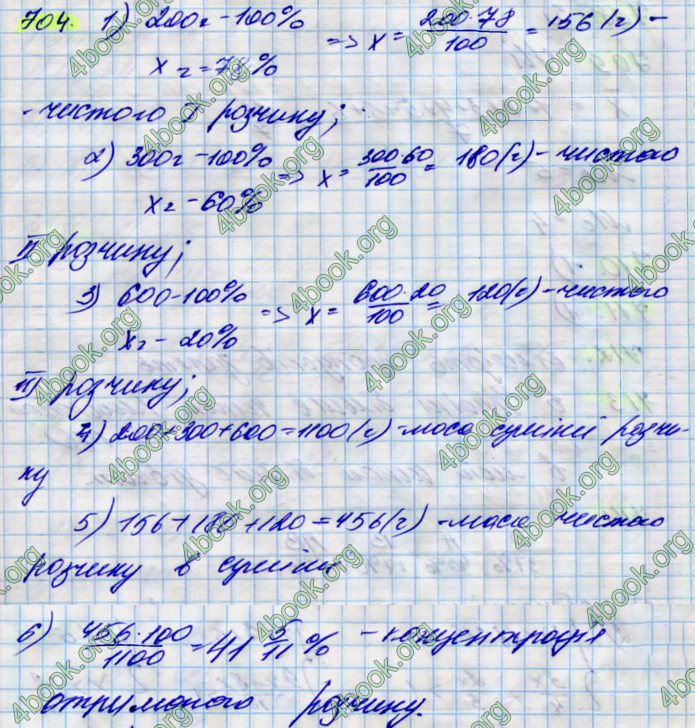 704. 1) 200г - 100%
xг = 78% => x = 200·78/100 = 156 (г) -
- чистого I розчину;
2) 300г - 100%
xг - 60% => x = 300·60/100 = 180 (г) - чистого
II розчину;
3) 600 - 100%
xг - 20% => x = 600·20/100 = 120 (г) - чистого
III розчину;
4) 200+300+600=1100 (г) - маса суміші розчи-
ну
5) 156+180+120=456 (г) - маса чистого
розчину в суміші
6) 456·100/1100 = 41 5/11 % - концентрація
отриманого розчину.
4book.org